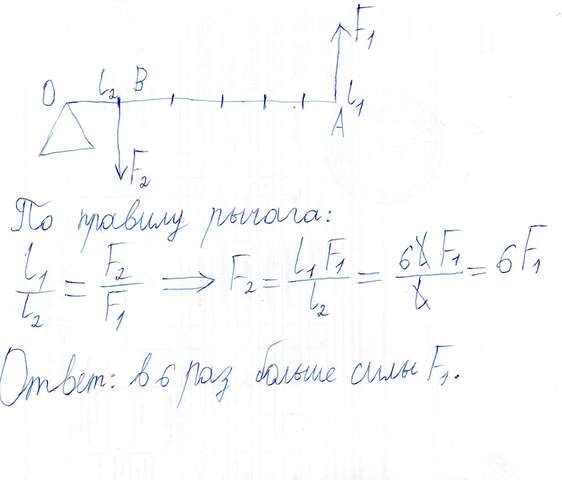 F₁
O l₂ B
A l₁
F₂
По правилу рычага:
l₁/l₂ = F₂/F₁ ⟹ F₂ = l₁F₁/l₂ = 6lF₁/l = 6F₁
Ответ: в 6 раз больше силы F₁.